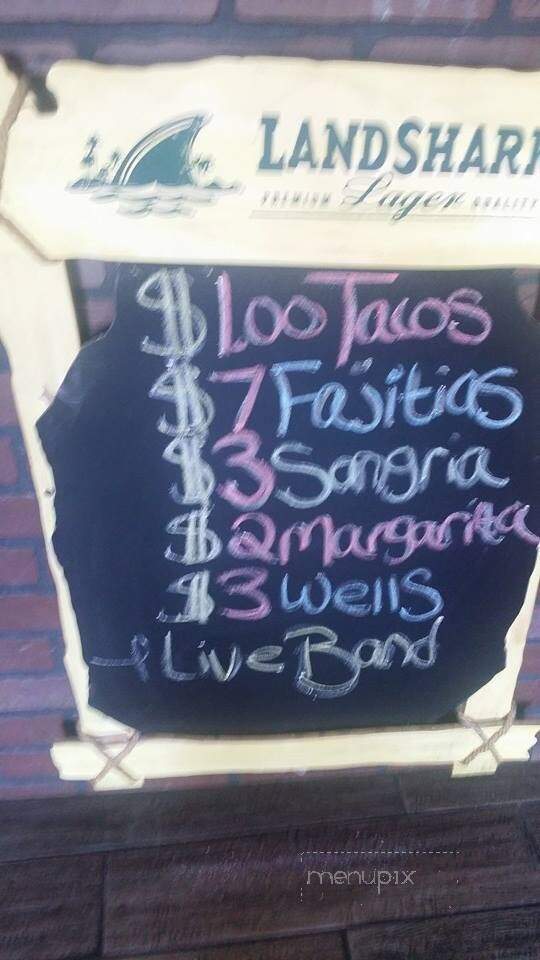 LANDSHARK
PREMIUM Lager QUALITY
$ 1.00 Tacos
$ 7 Fajitias
$ 3 Sangria
$ 2 Margarita
$ 3 Wells
+ Live Band
menupix